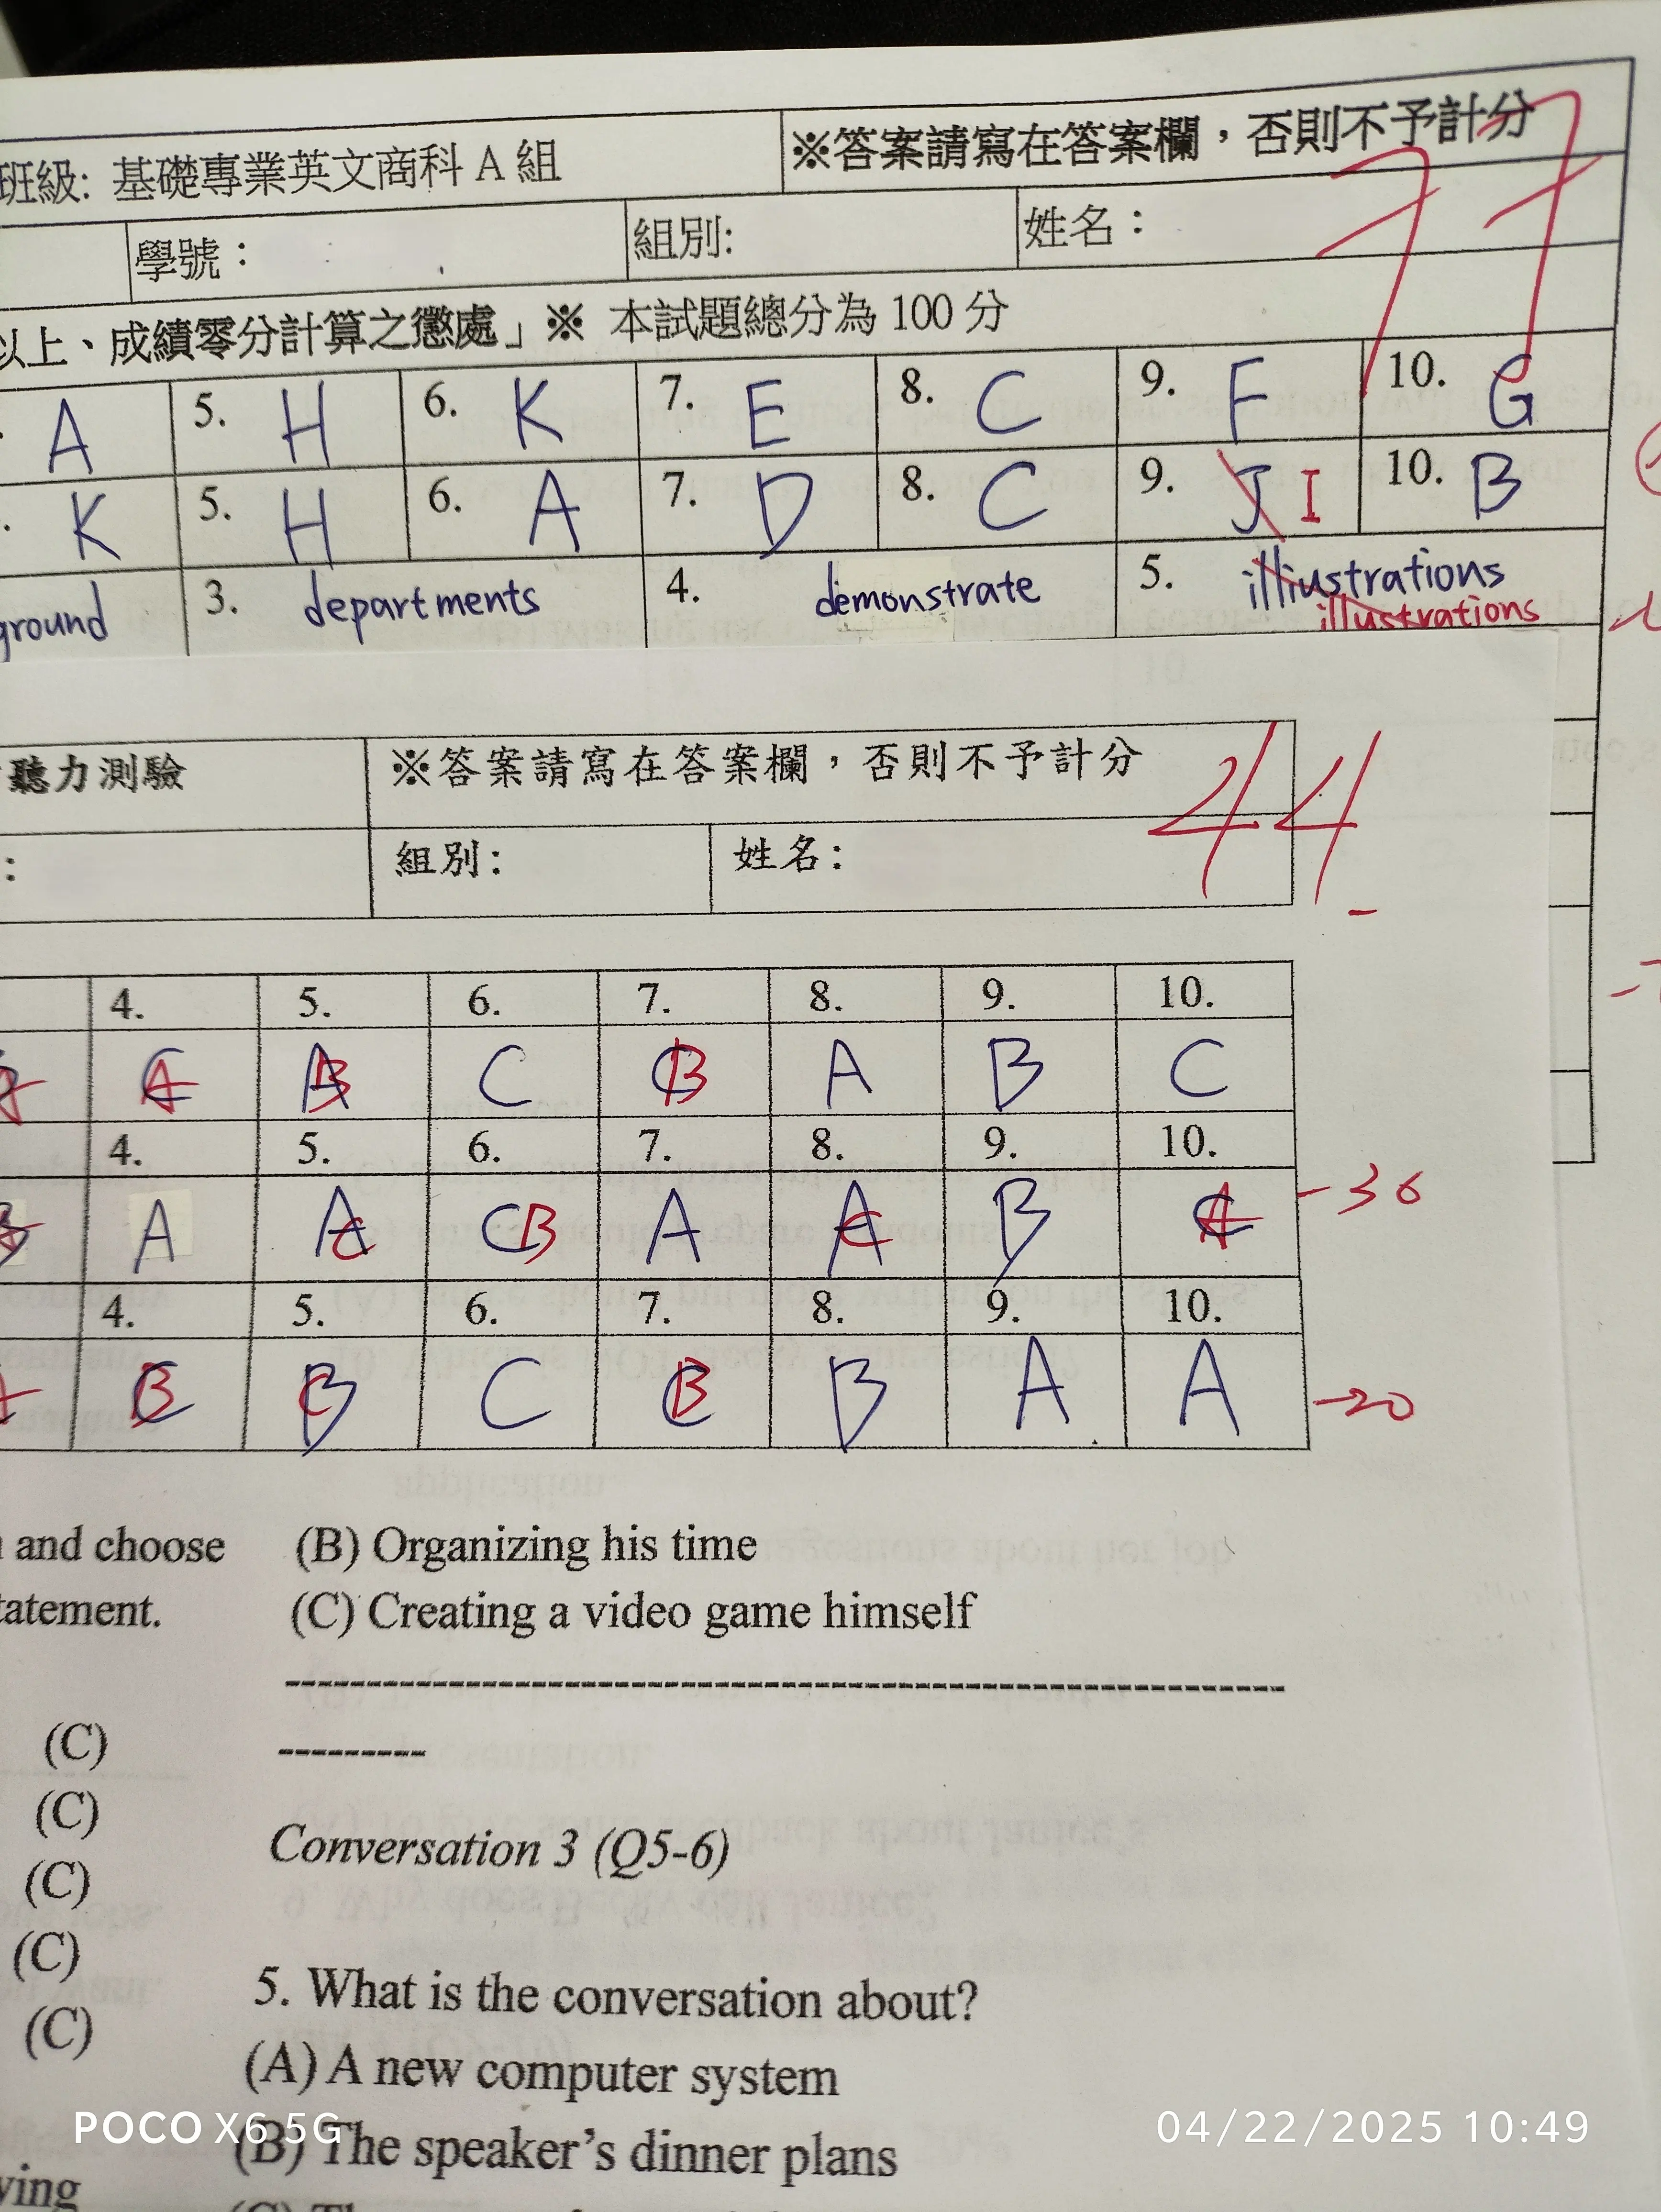 班級: 基礎專業英文商科 A 組 ※答案請寫在答案欄，否則不予計分
77
學號： 組別: 姓名：
以上、成績零分計算之懲處」※ 本試題總分為 100 分
A 5. H 6. K 7. E 8. C 9. F 10. G
K 5. H 6. A 7. D 8. C 9. J I 10. B
ground 3. departments 4. demonstrate 5. illiustrations
illustrations
聽力測驗 ※答案請寫在答案欄，否則不予計分
44
: 組別: 姓名:
4. 5. 6. 7. 8. 9. 10.
C A A B C C B A B C
4. 5. 6. 7. 8. 9. 10.
A A C C B A A C B C A
-36
4. 5. 6. 7. 8. 9. 10.
C B B C C C B B A A
-20
and choose
tatement.
(C)
(C)
(C)
(C)
(C)
ying
(B) Organizing his time
(C) Creating a video game himself
--------------------------------------------------------------
---------
Conversation 3 (Q5-6)
5. What is the conversation about?
(A) A new computer system
(B) The speaker's dinner plans
POCO X6 5G
04/22/2025 10:49